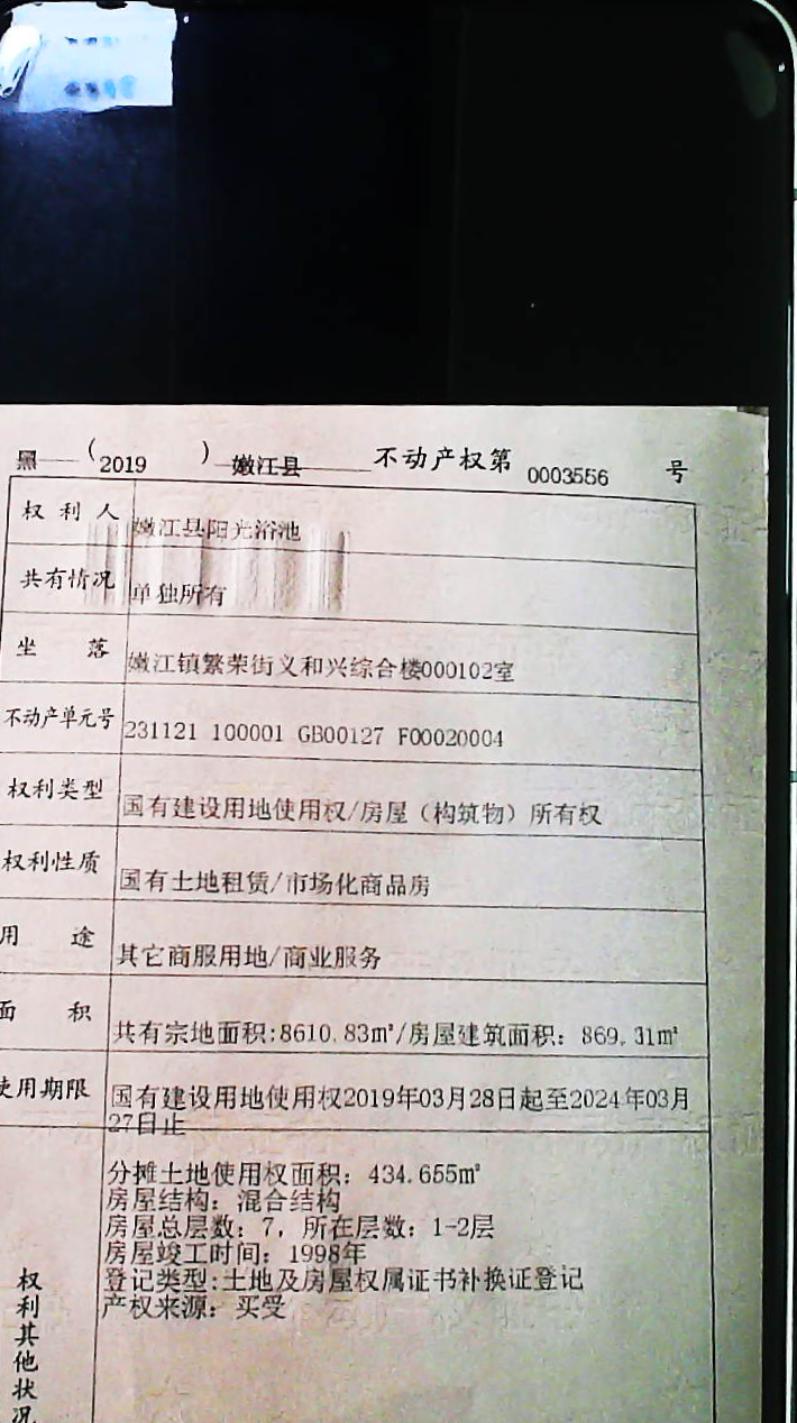 黑（2019）嫩江县不动产权第0003556号
权利人 嫩江县阳光浴池
共有情况 单独所有
坐落 嫩江镇繁荣街义和兴综合楼000102室
不动产单元号 231121 100001 GB00127 F00020004
权利类型 国有建设用地使用权/房屋（构筑物）所有权
权利性质 国有土地租赁/市场化商品房
用途 其它商服用地/商业服务
面积 共有宗地面积:8610.83㎡/房屋建筑面积：869.31㎡
使用期限 国有建设用地使用权2019年03月28日起至2024年03月
27日止
分摊土地使用权面积：434.655㎡
房屋结构：混合结构
房屋总层数：7，所在层数：1-2层
房屋竣工时间：1998年
登记类型:土地及房屋权属证书补换证登记
产权来源：买受
权利其他状况